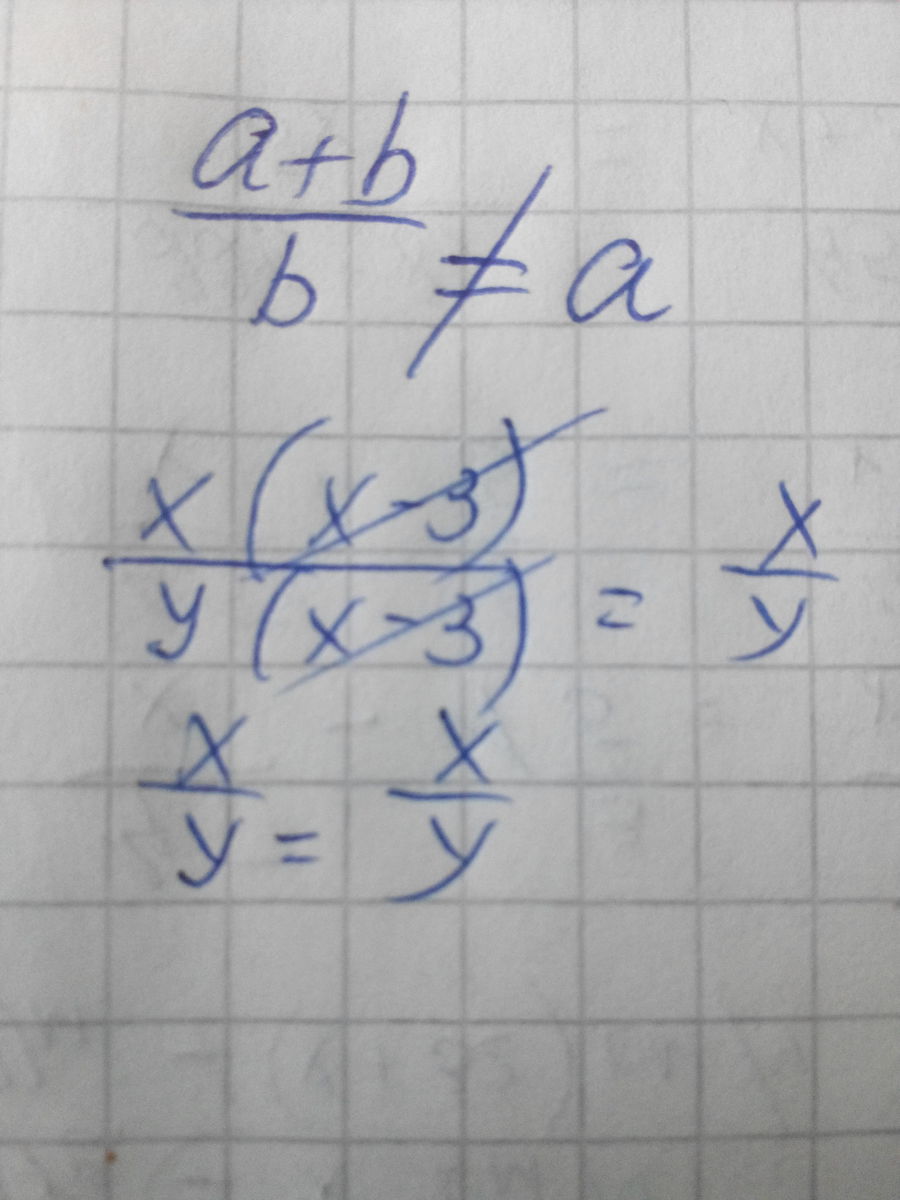 a+b/b ≠ a
x(x-3)/y(x-3) = x/y
x/y = x/y